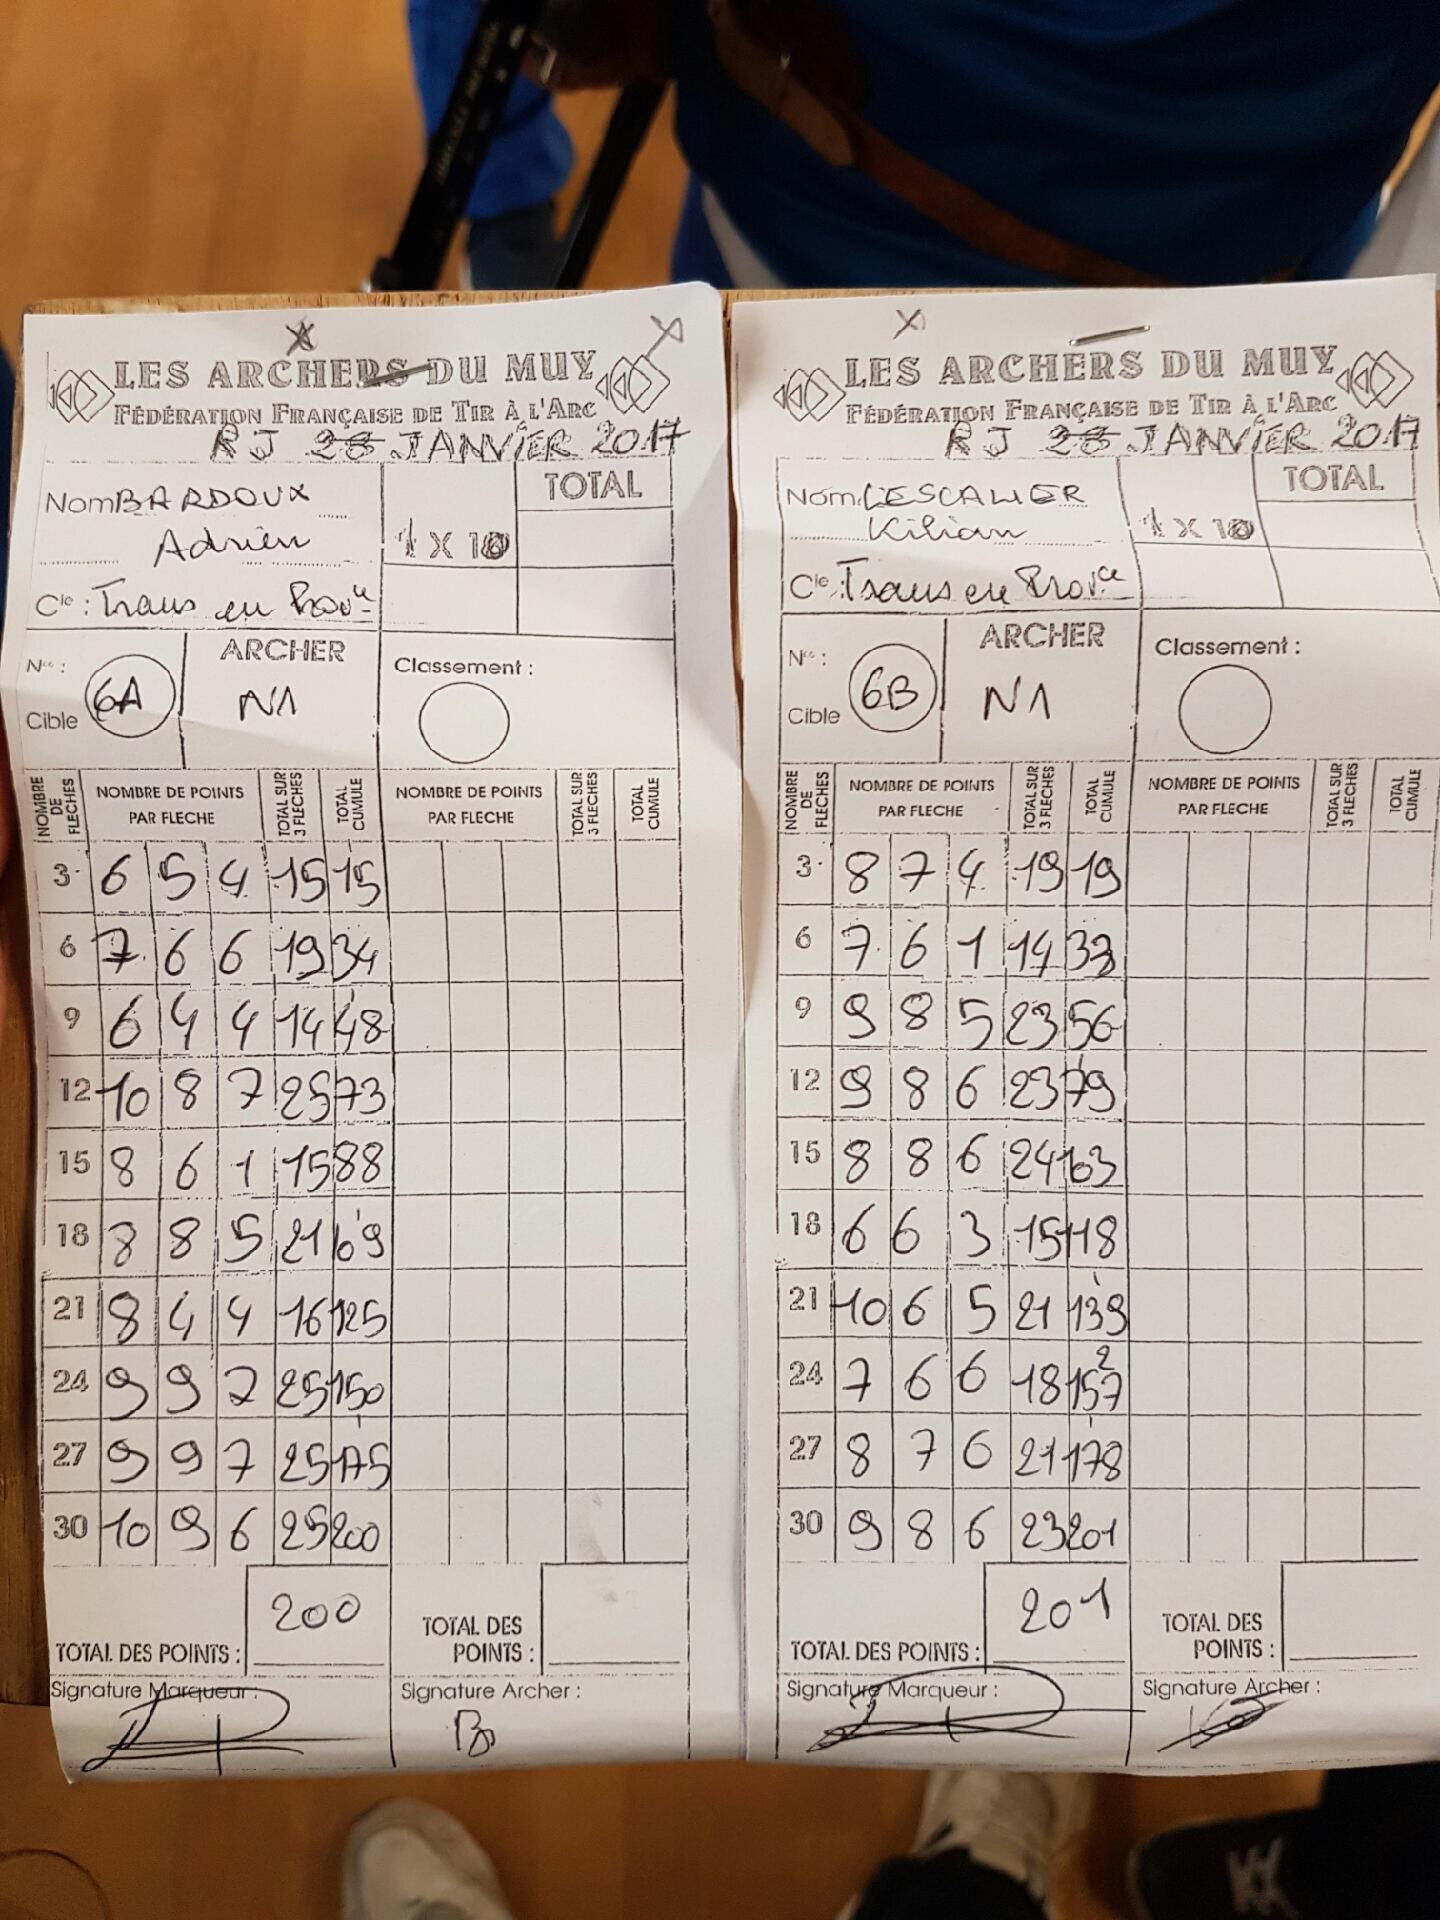 LES ARCHERS DU MUY
FÉDÉRATION FRANÇAISE DE TIR À L'ARC
RJ 28 JANVIER 2017
Nom BARDOUX
Adrien
1 X 10
TOTAL
Cie : Trans en Prov ce
Nos :
Cible
6A
ARCHER
N1
Classement :
NOMBRE DE FLECHES
NOMBRE DE POINTS PAR FLECHE
TOTAL SUR 3 FLECHES
TOTAL CUMULE
NOMBRE DE POINTS PAR FLECHE
TOTAL SUR 3 FLECHES
TOTAL CUMULE
3 6 5 4 15 15
6 7 6 6 19 34
9 6 4 4 14 48
12 10 8 7 25 73
15 8 6 1 15 88
18 8 8 5 21 109
21 8 4 4 16 125
24 9 9 7 25 150
27 9 9 7 25 175
30 10 9 6 25 200
TOTAL DES POINTS : 200
TOTAL DES POINTS :
Signature Marqueur :
Signature Archer :
LES ARCHERS DU MUY
FÉDÉRATION FRANÇAISE DE TIR À L'ARC
RJ 28 JANVIER 2017
Nom LESCALIER
Kilian
1 X 10
TOTAL
Cie : Trans en Prov ce
Nos :
Cible
6B
ARCHER
N1
Classement :
NOMBRE DE FLECHES
NOMBRE DE POINTS PAR FLECHE
TOTAL SUR 3 FLECHES
TOTAL CUMULE
NOMBRE DE POINTS PAR FLECHE
TOTAL SUR 3 FLECHES
TOTAL CUMULE
3 8 7 4 19 19
6 7 6 1 14 33
9 9 8 5 23 56
12 9 8 6 23 79
15 8 8 6 24 103
18 6 6 3 15 118
21 10 6 5 21 139
24 7 6 6 18 157 2
27 8 7 6 21 178
30 9 8 6 23 201
TOTAL DES POINTS : 201
TOTAL DES POINTS :
Signature Marqueur :
Signature Archer :